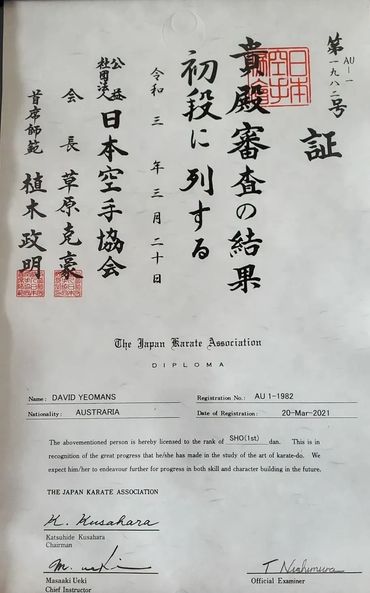 第 AU-一 一九八二号
証
貴殿審査の結果
初段に列する
令和三年三月二十日
公益社団法人 日本空手協会
会長 草原克豪
首席師範 植木政明
The Japan Karate Association
DIPLOMA
Name: DAVID YEOMANS Registration No.: AU 1-1982
Nationality: AUSTRARIA Date of Registration: 20-Mar-2021
The abovementioned person is hereby licensed to the rank of SHO(1st) dan. This is in
recognition of the great progress that he/she has made in the study of the art of karate-do. We
expect him/her to endeavour further for progress in both skill and character building in the future.
THE JAPAN KARATE ASSOCIATION
K. Kusahara
Katsuhide Kusahara
Chairman
M. Ueki T. Nishimura
Masaaki Ueki Official Examiner
Chief Instructor